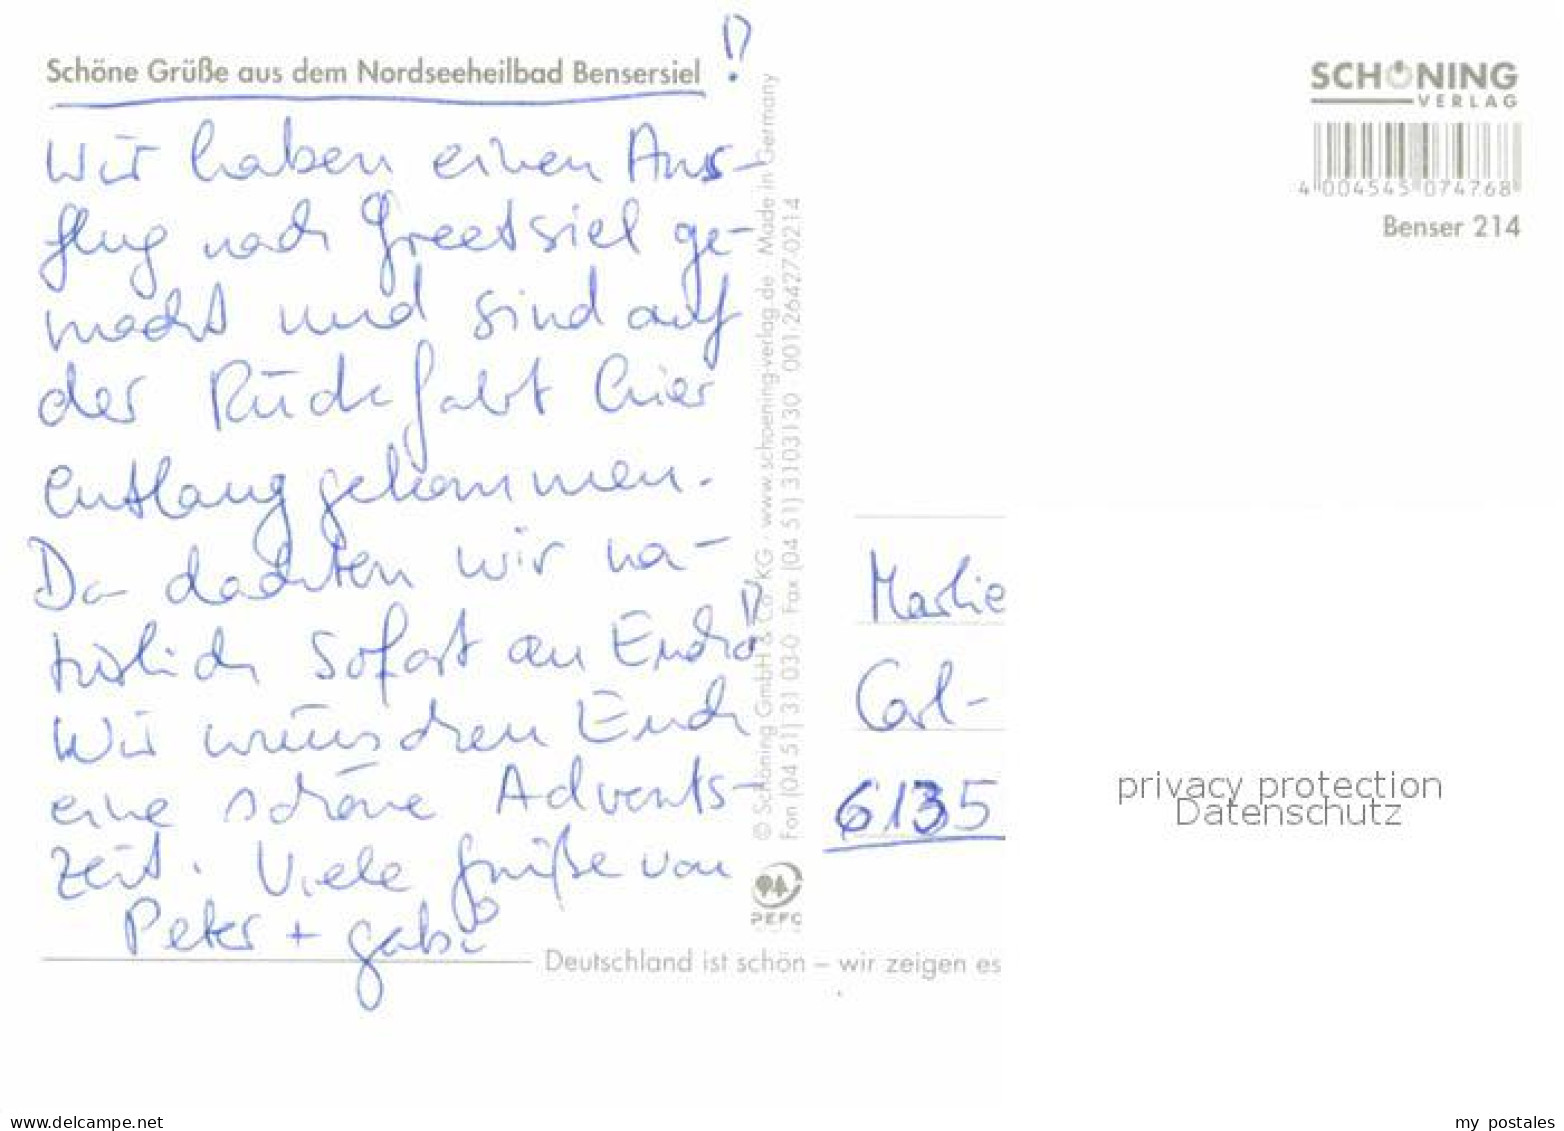 Schöne Grüße aus dem Nordseeheilbad Bensersiel !
Wir haben einen Aus-
flug nach Greetsiel ge-
macht und sind auf
der Rückfahrt hier
entlang gekommen.
Da dachten wir na-
türlich sofort an Euch!
Wir wünschen Euch
eine schöne Advents-
zeit. Viele Grüße von
Peter + Gabi
© Schöning GmbH & Co. KG · www.schoening-verlag.de · Made in Germany
Fon (04 51) 31 03-0 · Fax (04 51) 3103130 · 001-26427-0214
PEFC
Deutschland ist schön – wir zeigen es
SCHÖNING
VERLAG
4 004545 074768
Benser 214
Marlie
Carl-
6135
privacy protection
Datenschutz
www.delcampe.net
my_postales